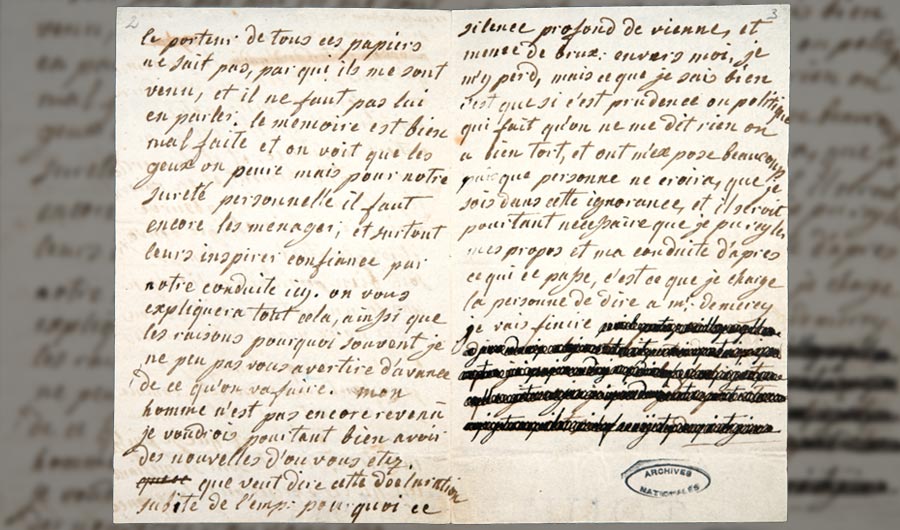 2
le porteur de tous ces papiers
ne sait pas, par qui ils me sont
venu, et il ne faut pas lui
en parler. le memoire est bien
mal faite et on voit que les
geux on peure mais pour notre
sureté personnelle il faut
encore les menager, et surtout
leurs inspirer confiance par
notre conduite icy. on vous
expliquera tout cela, ainsi que
les raisons pourquoi souvent je
ne peu pas vous avertire d'avance
de ce qu'on va faire. mon
homme n'est pas encore revenû
je voudrois pourtant bien avoir
des nouvelles d'ou vous etez.
que veut dire cette declaration
subite de l'emp: pourquoi ce
3
silence profond de vienne, et
meme de brux: envers moi, je
m'y perd, mais ce que je sais bien
c'est que si c'est prudence ou politique
qui fait qu'on ne me dit rien on
a bien tort, et ont m'expose beaucoup
puis que personne ne croira, que je
sois dans cette ignorance, et il seroit
pourtant necessaire que je pu regler
mes propos et ma conduite d'apres
ce qui ce passe, c'est ce que je charge
la personne de dire a mr: de mercy
je vais finire
ARCHIVES
NATIONALES